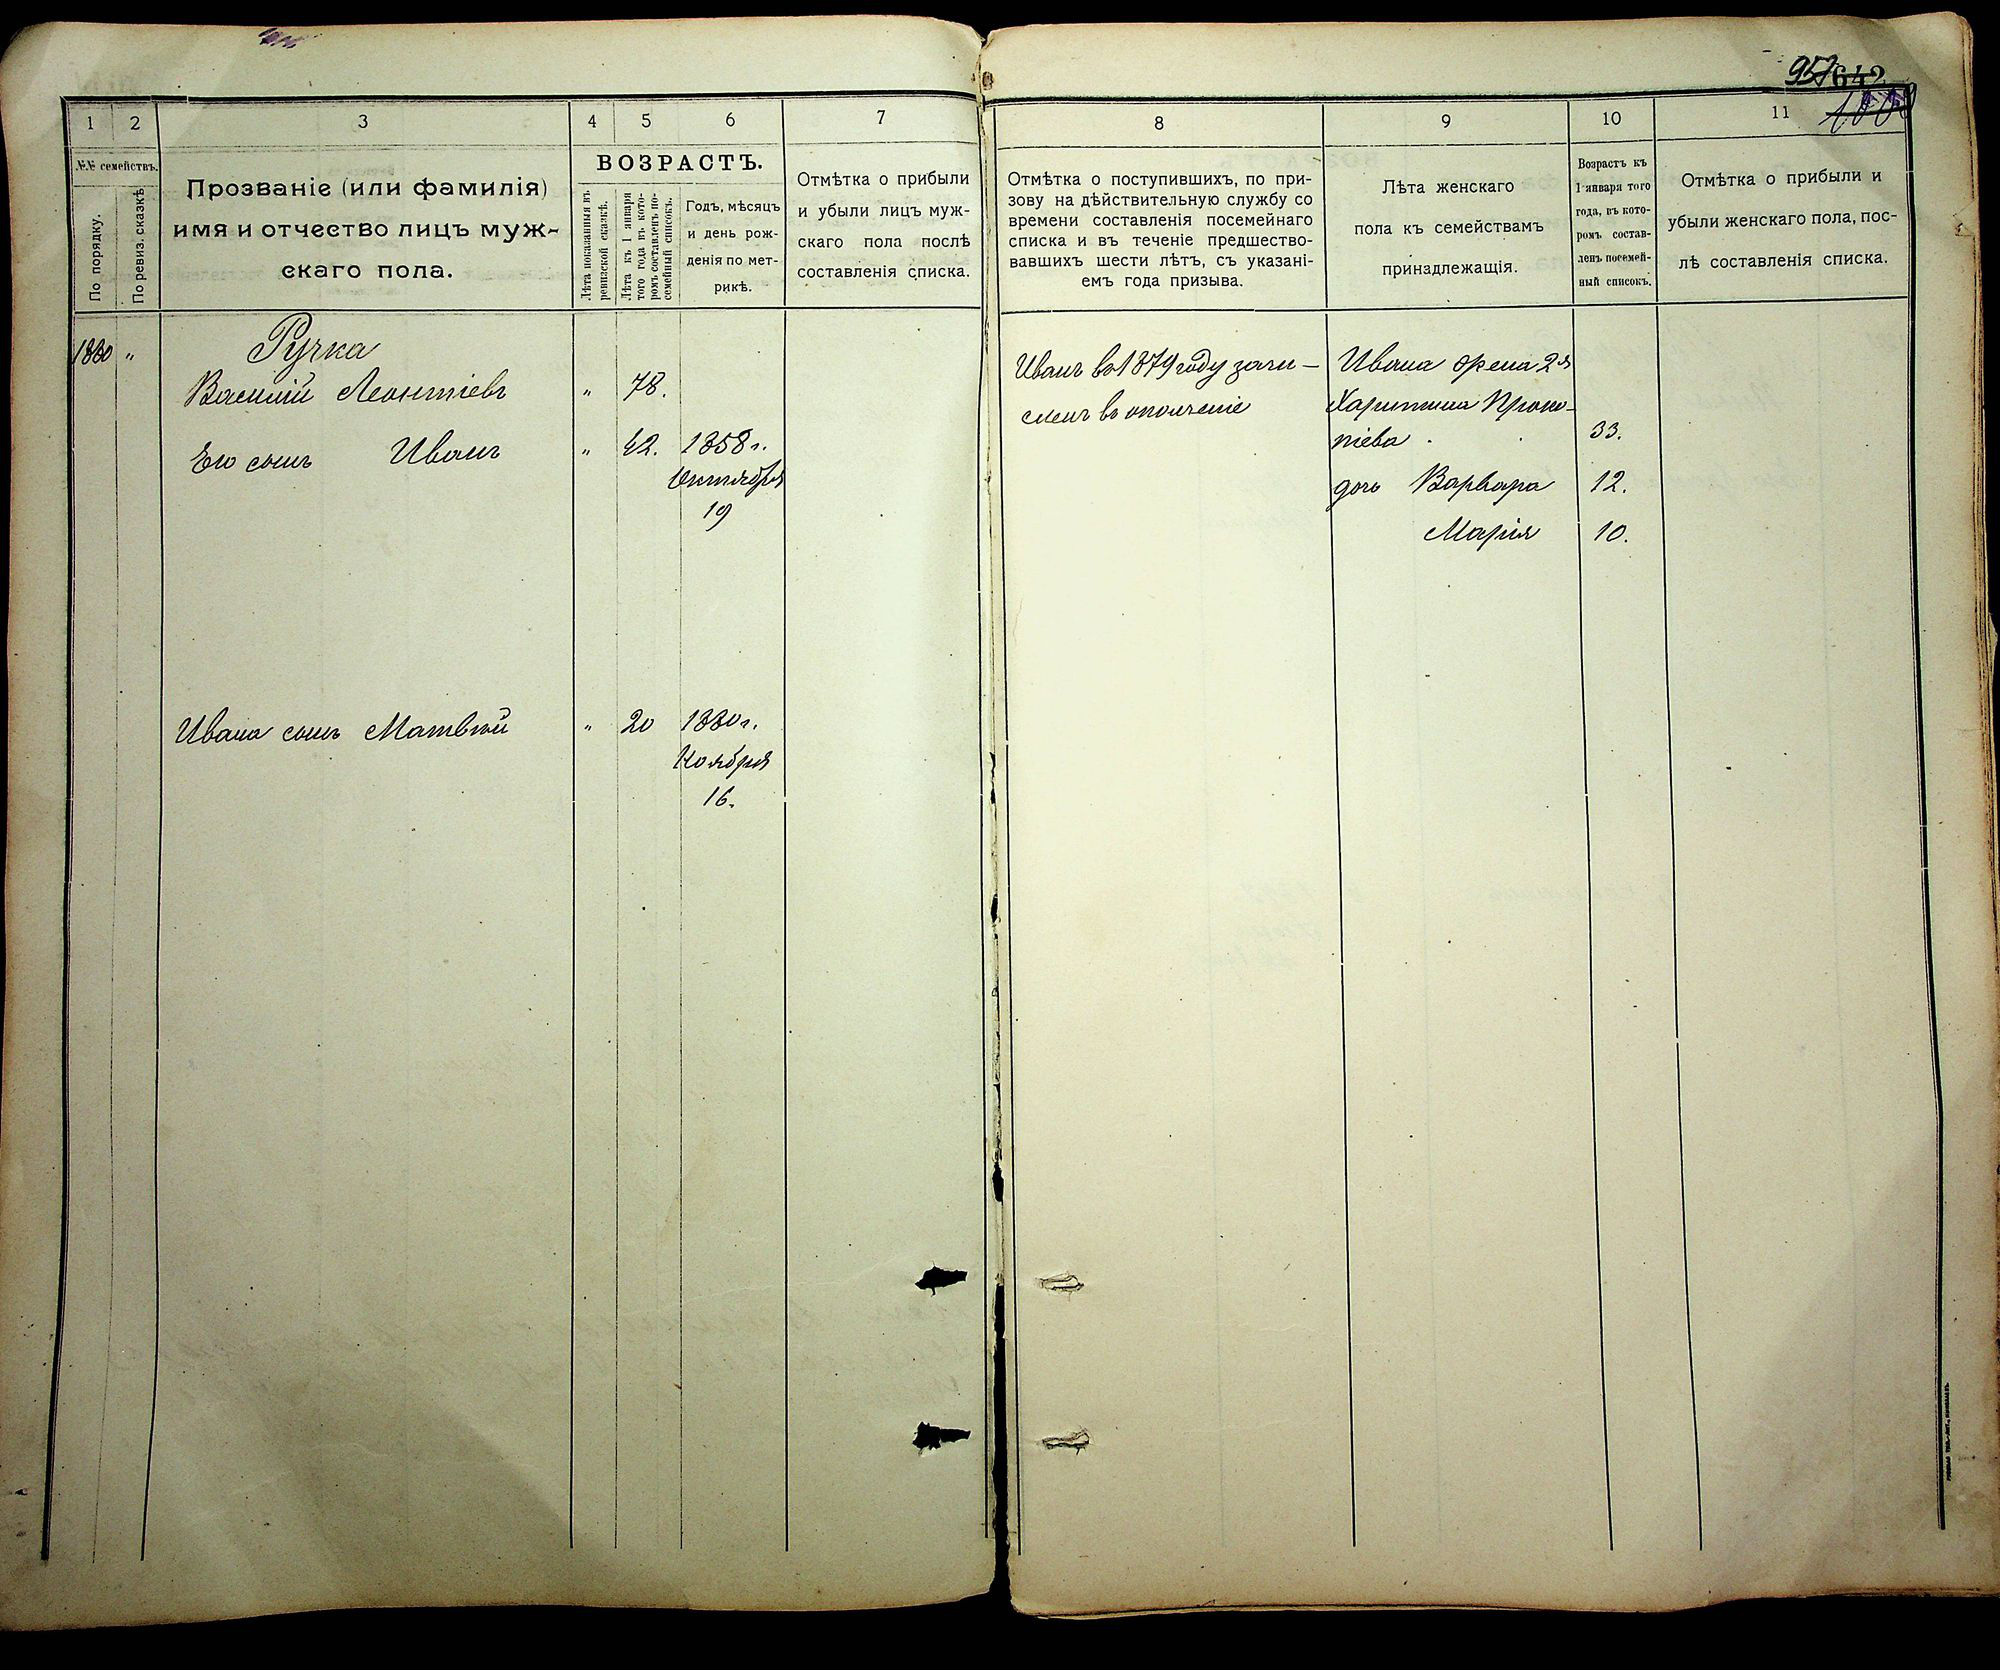 642
1 2 3 4 5 6 7
№№ семействъ.
По порядку.
По ревиз. сказкѣ
Прозваніе (или фамилія)
имя и отчество лицъ муж-
скаго пола.
ВОЗРАСТЪ.
Лѣта показанныя въ
ревизской сказкѣ.
Лѣта къ 1 января
того года въ кото-
ромъ составленъ по-
семейный списокъ.
Годъ, мѣсяцъ
и день рож-
денія по мет-
рикѣ.
Отмѣтка о прибыли
и убыли лицъ муж-
скаго пола послѣ
составленія списка.
Ручка
Василій Леонтіевъ " 78.
Его сынъ Иванъ " 42. 1858 г.
Октября
19
Ивана сынъ Матвѣй " 20 1880 г.
Ноября
16.
8 9 10 11
Отмѣтка о поступившихъ, по при-
зову на дѣйствительную службу со
времени составленія посемейнаго
списка и въ теченіе предшество-
вавшихъ шести лѣтъ, съ указані-
емъ года призыва.
Лѣта женскаго
пола къ семействамъ
принадлежащія.
Возрастъ къ
1 января того
года, въ кото-
ромъ состав-
ленъ посемей-
ный списокъ.
Отмѣтка о прибыли и
убыли женскаго пола, пос-
лѣ составленія списка.
Иванъ въ 1879 году зачи-
сленъ въ ополченіе
Ивана жена 2я
Харитина Проко-
піева 33.
дочь Варвара 12.
Марія 10.